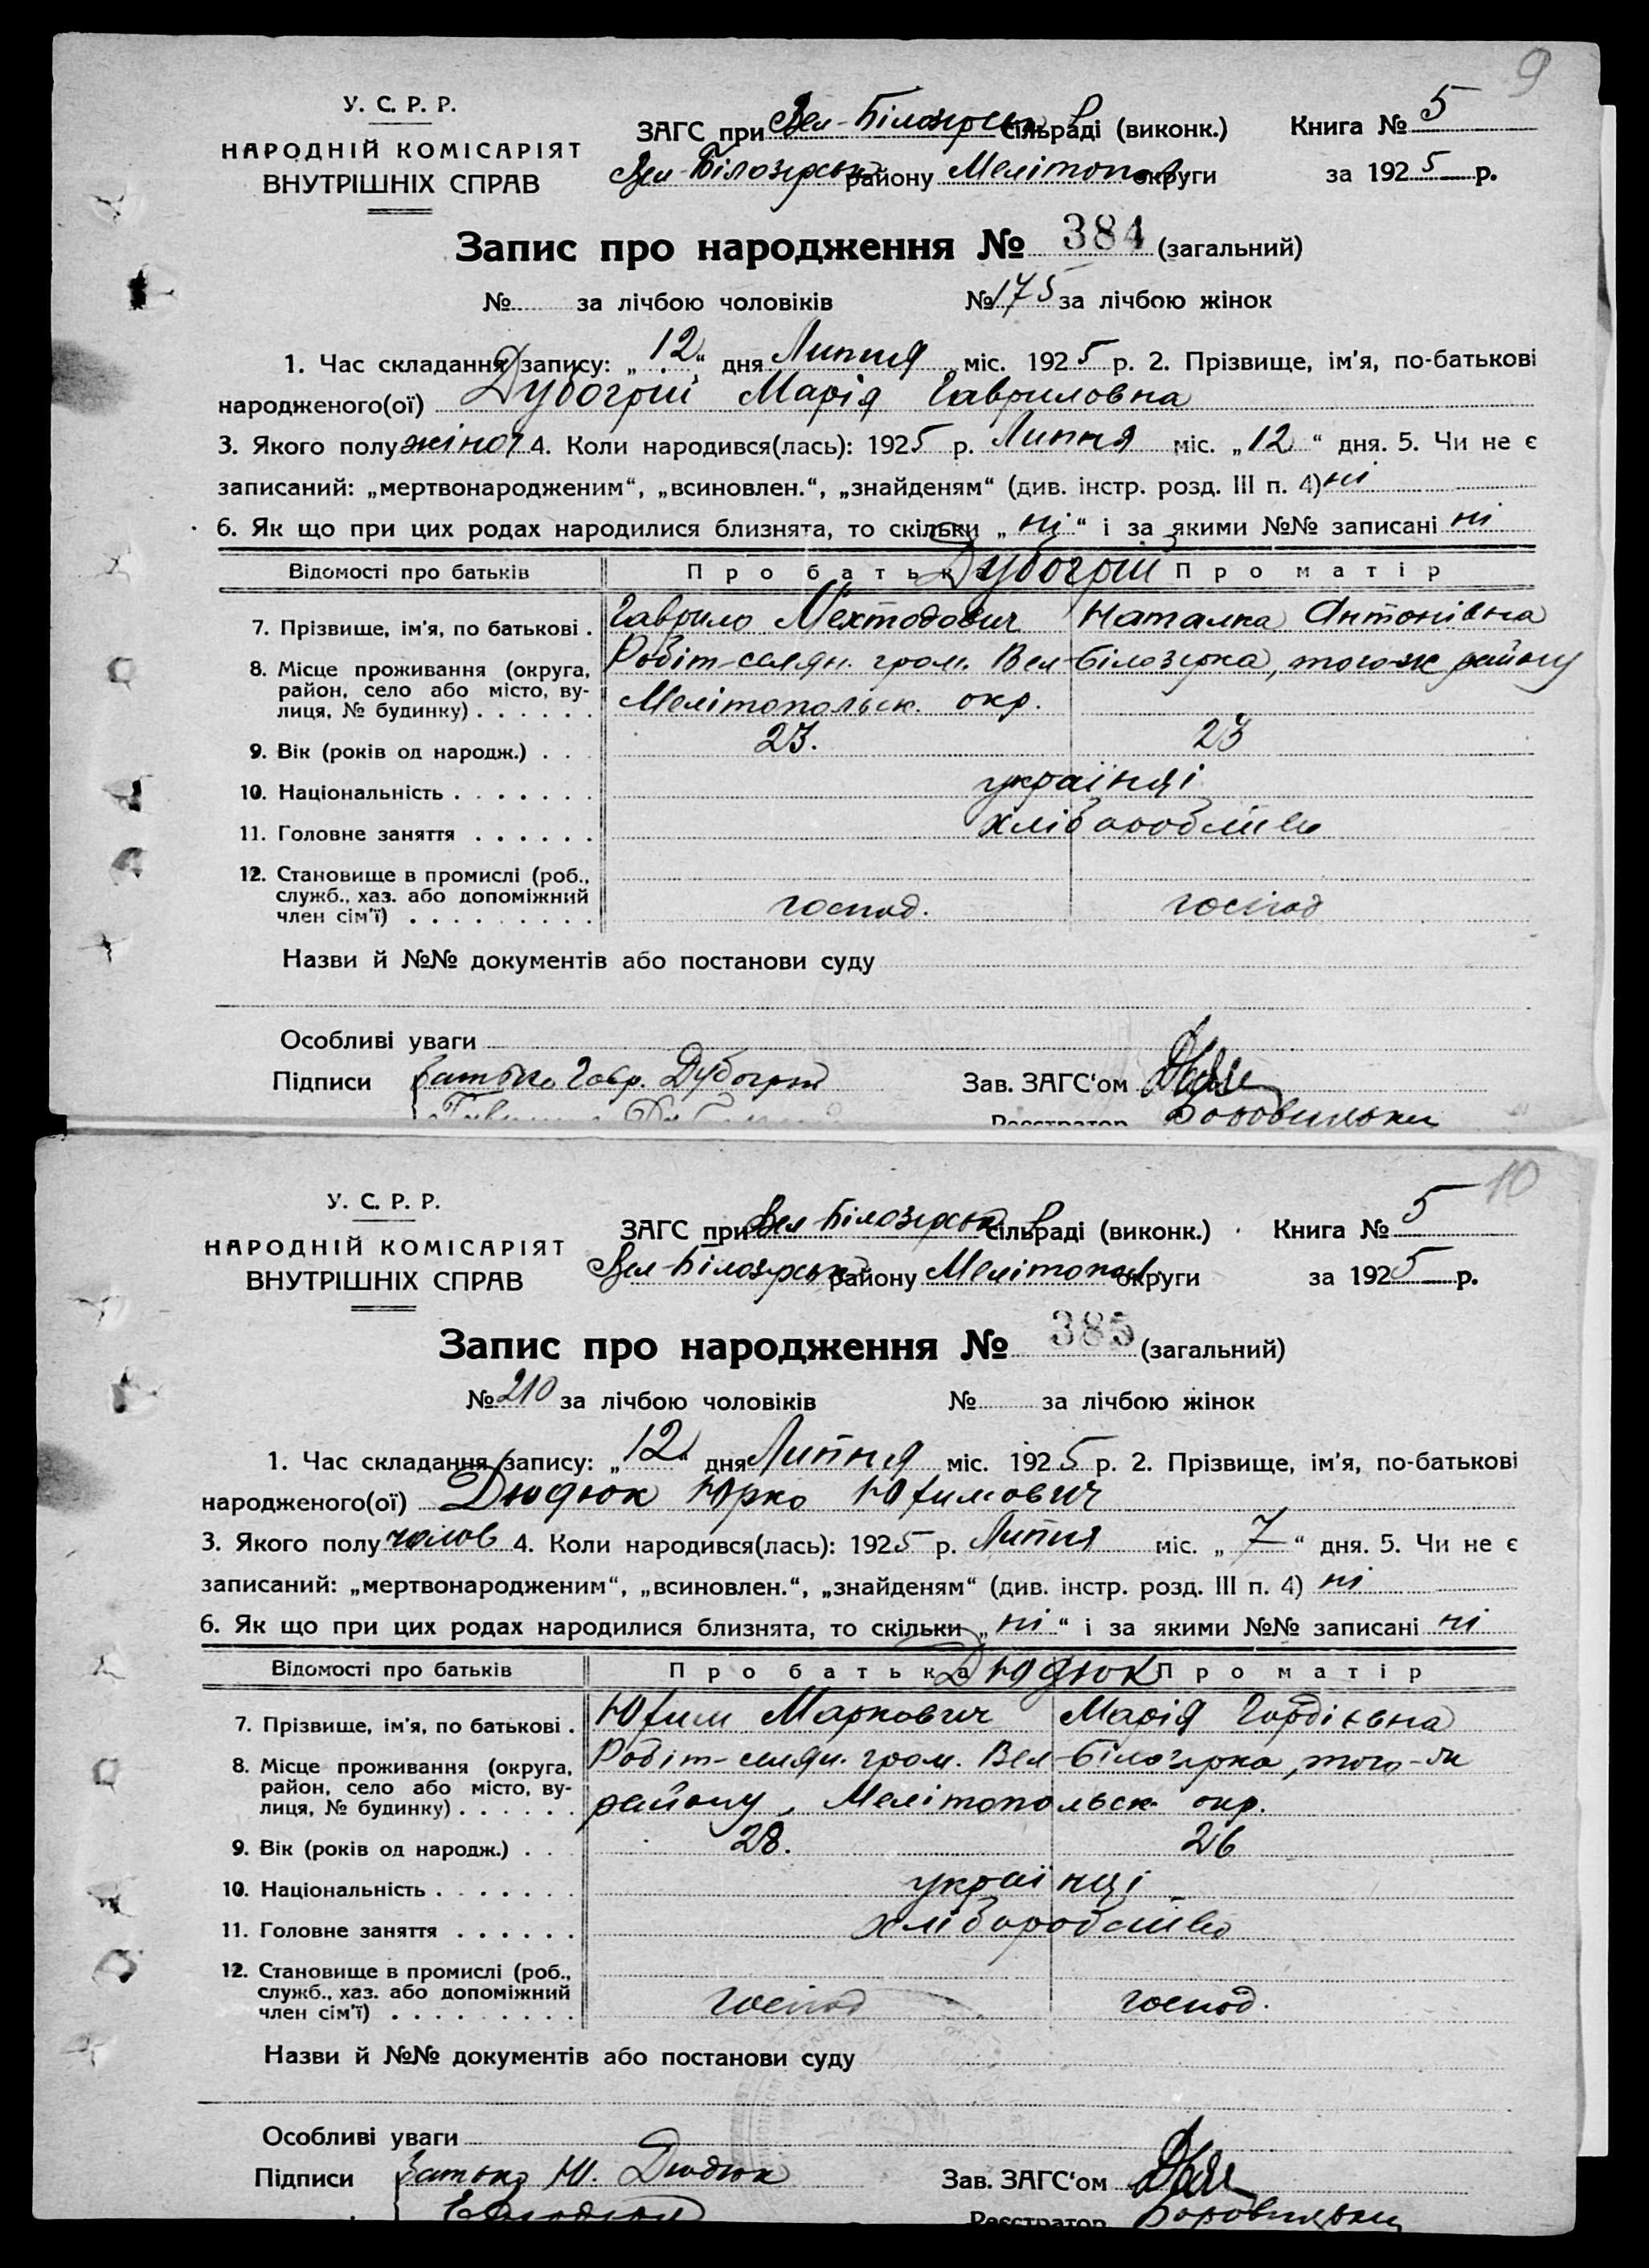 9
У. С. Р. Р.
НАРОДНІЙ КОМІСАРІЯТ
ВНУТРІШНІХ СПРАВ
ЗАГС при Вел-Білозірськ сільраді (виконк.)
Вел-Білозірськ району Мелітопол. округи
Книга № 5
за 1925 р.
Запис про народження № 384 (загальний)
№ за лічбою чоловіків № 175 за лічбою жінок
1. Час складання запису: „12“ дня Липня міс. 1925 р. 2. Прізвище, ім'я, по-батькові
народженого(ої) Дубогрій Марія Гавриловна
3. Якого полу жіноч 4. Коли народився(лась): 1925 р. Липня міс. „12“ дня. 5. Чи не є
записаний: „мертвонародженим“, „всиновлен.“, „знайденям“ (див. інстр. розд. III п. 4) ні
6. Як що при цих родах народилися близнята, то скільки „ні“ і за якими №№ записані ні
Відомості про батьків Про батька Дубогрій Про матір
7. Прізвище, ім'я, по батькові . Гаврило Мехтодович Наталка Антонівна
8. Місце проживання (округа, Робіт-селян. гром. Вел-Білозірка, того-ж району
район, село або місто, ву-
лиця, № будинку) . . . . . . Мелітопольськ. окр.
9. Вік (років од народж.) . . . 23. 23
10. Національність . . . . . . . українці
11. Головне заняття . . . . . . хліборобство
12. Становище в промислі (роб.,
служб., хаз. або допоміжний
член сім'ї) . . . . . . . . . господ. господ
Назви й №№ документів або постанови суду
Особливі уваги
Підписи батько Гавр. Дубогрій Зав. ЗАГС'ом
Реєстратор
10
У. С. Р. Р.
НАРОДНІЙ КОМІСАРІЯТ
ВНУТРІШНІХ СПРАВ
ЗАГС при Вел-Білозірськ сільраді (виконк.)
Вел-Білозірськ району Мелітопол. округи
Книга № 5
за 1925 р.
Запис про народження № 385 (загальний)
№ 210 за лічбою чоловіків № за лічбою жінок
1. Час складання запису: „12“ дня Липня міс. 1925 р. 2. Прізвище, ім'я, по-батькові
народженого(ої) Дюдюк Юрко Юхимович
3. Якого полу чолов 4. Коли народився(лась): 1925 р. Липня міс. „7“ дня. 5. Чи не є
записаний: „мертвонародженим“, „всиновлен.“, „знайденям“ (див. інстр. розд. III п. 4) ні
6. Як що при цих родах народилися близнята, то скільки „ні“ і за якими №№ записані ні
Відомості про батьків Про батька Дюдюк Про матір
7. Прізвище, ім'я, по батькові . Юхим Маркович Марія Гордієвна
8. Місце проживання (округа, Робіт-селян. гром. Вел-Білозірка, того-ж
район, село або місто, ву-
лиця, № будинку) . . . . . . району, Мелітопольськ окр.
9. Вік (років од народж.) . . 28. 26
10. Національність . . . . . . . українці
11. Головне заняття . . . . . . хліборобство
12. Становище в промислі (роб.,
служб., хаз. або допоміжний
член сім'ї) . . . . . . . . . господ господ.
Назви й №№ документів або постанови суду
Особливі уваги
Підписи батько Ю. Дюдюк Зав. ЗАГС'ом
Реєстратор